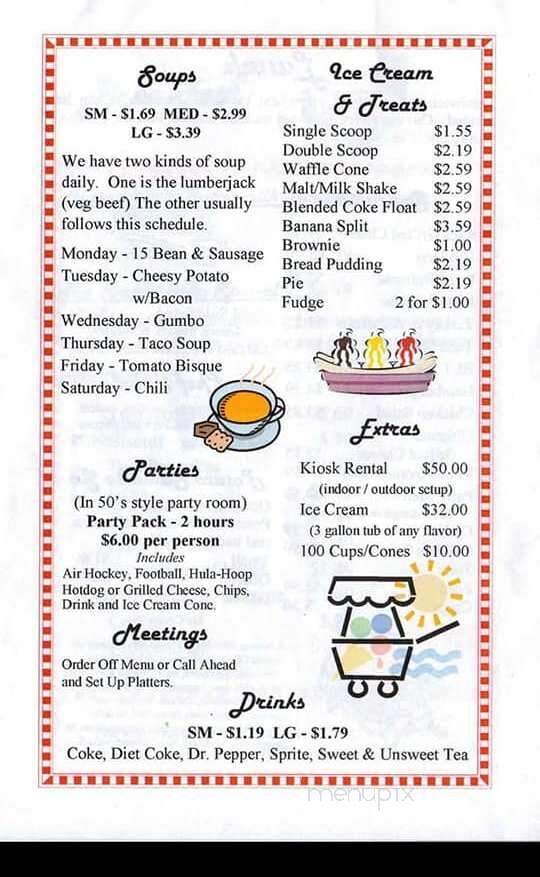 Soups
SM - $1.69 MED - $2.99
LG - $3.39
We have two kinds of soup
daily. One is the lumberjack
(veg beef) The other usually
follows this schedule.
Monday - 15 Bean & Sausage
Tuesday - Cheesy Potato
w/Bacon
Wednesday - Gumbo
Thursday - Taco Soup
Friday - Tomato Bisque
Saturday - Chili
Parties
(In 50's style party room)
Party Pack - 2 hours
$6.00 per person
Includes
Air Hockey, Football, Hula-Hoop
Hotdog or Grilled Cheese, Chips,
Drink and Ice Cream Cone.
Meetings
Order Off Menu or Call Ahead
and Set Up Platters.
Ice Cream
& Treats
Single Scoop $1.55
Double Scoop $2.19
Waffle Cone $2.59
Malt/Milk Shake $2.59
Blended Coke Float $2.59
Banana Split $3.59
Brownie $1.00
Bread Pudding $2.19
Pie $2.19
Fudge 2 for $1.00
Extras
Kiosk Rental $50.00
(indoor / outdoor setup)
Ice Cream $32.00
(3 gallon tub of any flavor)
100 Cups/Cones $10.00
Drinks
SM - $1.19 LG - $1.79
Coke, Diet Coke, Dr. Pepper, Sprite, Sweet & Unsweet Tea
menupix